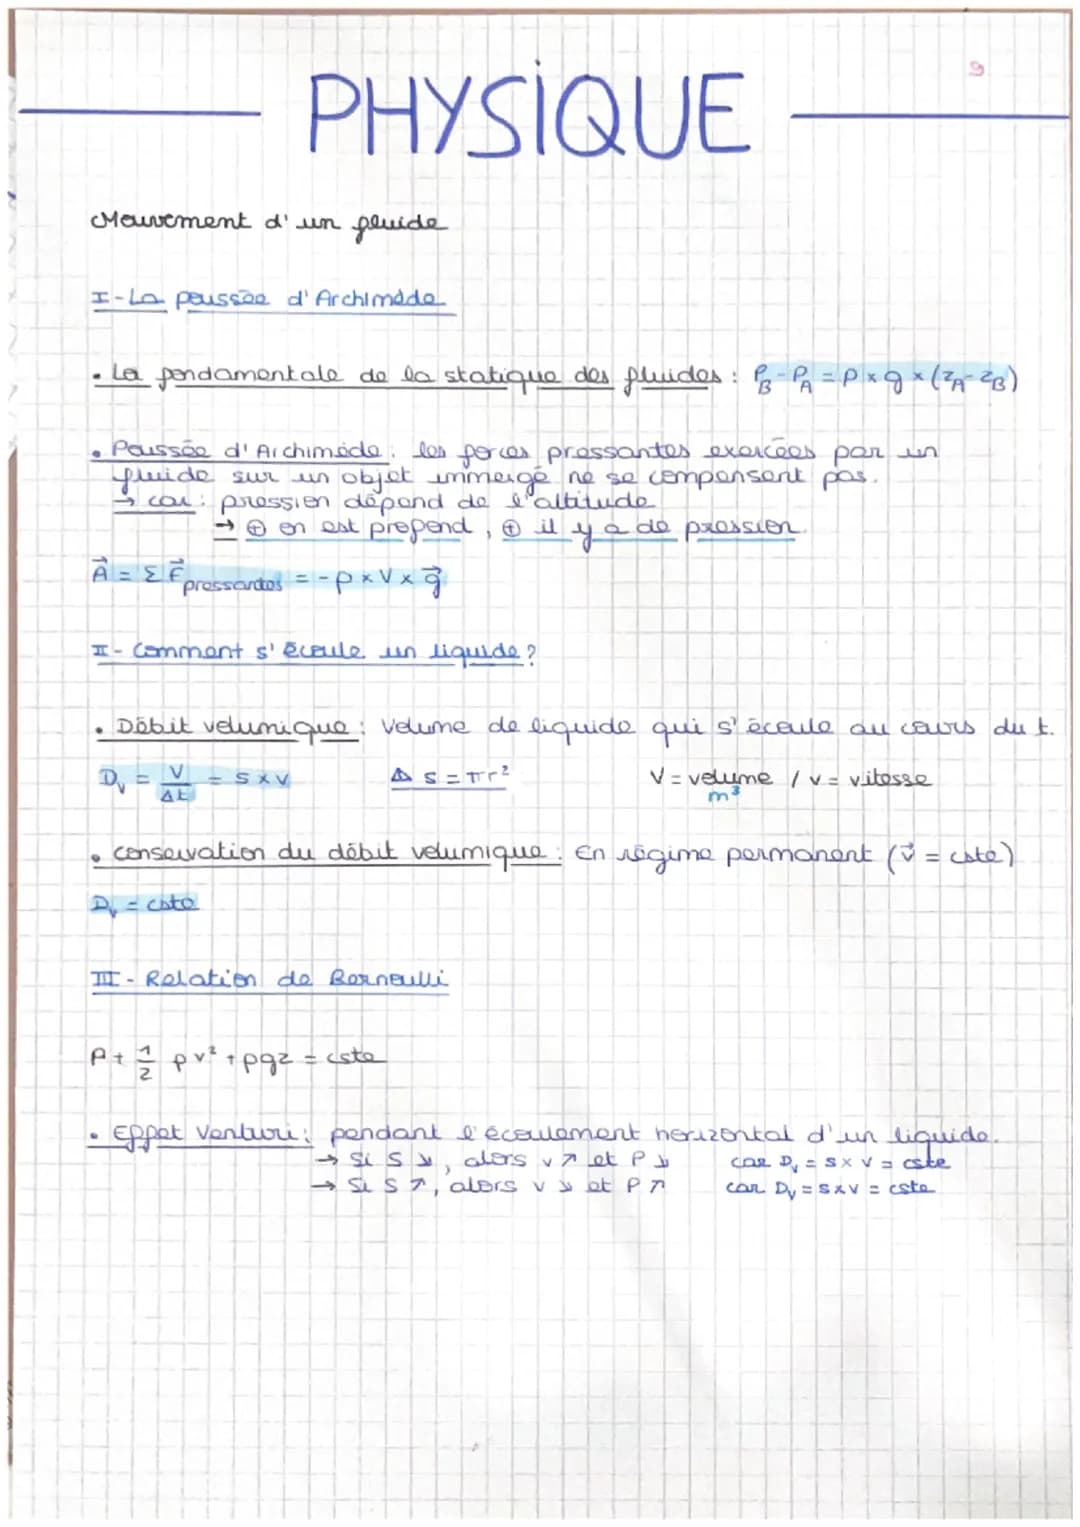 9
PHYSIQUE
Mouvement d'un fluide
I - La poussée d'Archimède
• La fondamentale de la statique des fluides : P_B - P_A = ρ × g × (z_A - z_B)
• Poussée d'Archimède : les forces pressantes exercées par un
fluide sur un objet immergé ne se compensent pas.
→ car : pression dépend de l'altitude
→ ⊕ on est profond, ⊕ il y a de pression.
A⃗ = Σ F⃗ pressantes = - ρ × V × g⃗
II - Comment s'écoule un liquide ?
• Débit volumique : Volume de liquide qui s'écoule au cours du t.
D_v = V/Δt = S × v   ⚠ S = πr²   V = volume / v = vitesse
m³
• conservation du débit volumique : En régime permanent (v⃗ = cste)
D_v = cste
III - Relation de Bernoulli
P + 1/2 ρv² + ρgz = cste
• Effet Venturi : pendant l'écoulement horizontal d'un liquide.
→ Si S ↘, alors v ↗ et P ↘   car D_v = S × V = cste
→ Si S ↗, alors v ↘ et P ↗   car D_v = S × V = cste